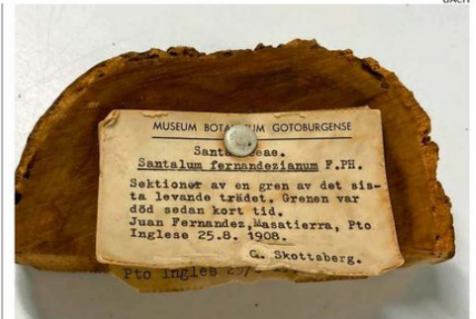 MUSEUM BOTANICUM GOTOBURGENSE
Santalaceae.
Santalum fernandezianum F.PH.
Sektioner av en gren av det sis-
ta levande trädet. Grenen var
död sedan kort tid.
Juan Fernandez, Masatierra, Pto
Inglese 25.8. 1908.
C. Skottsberg.
Pto Ingles 25/